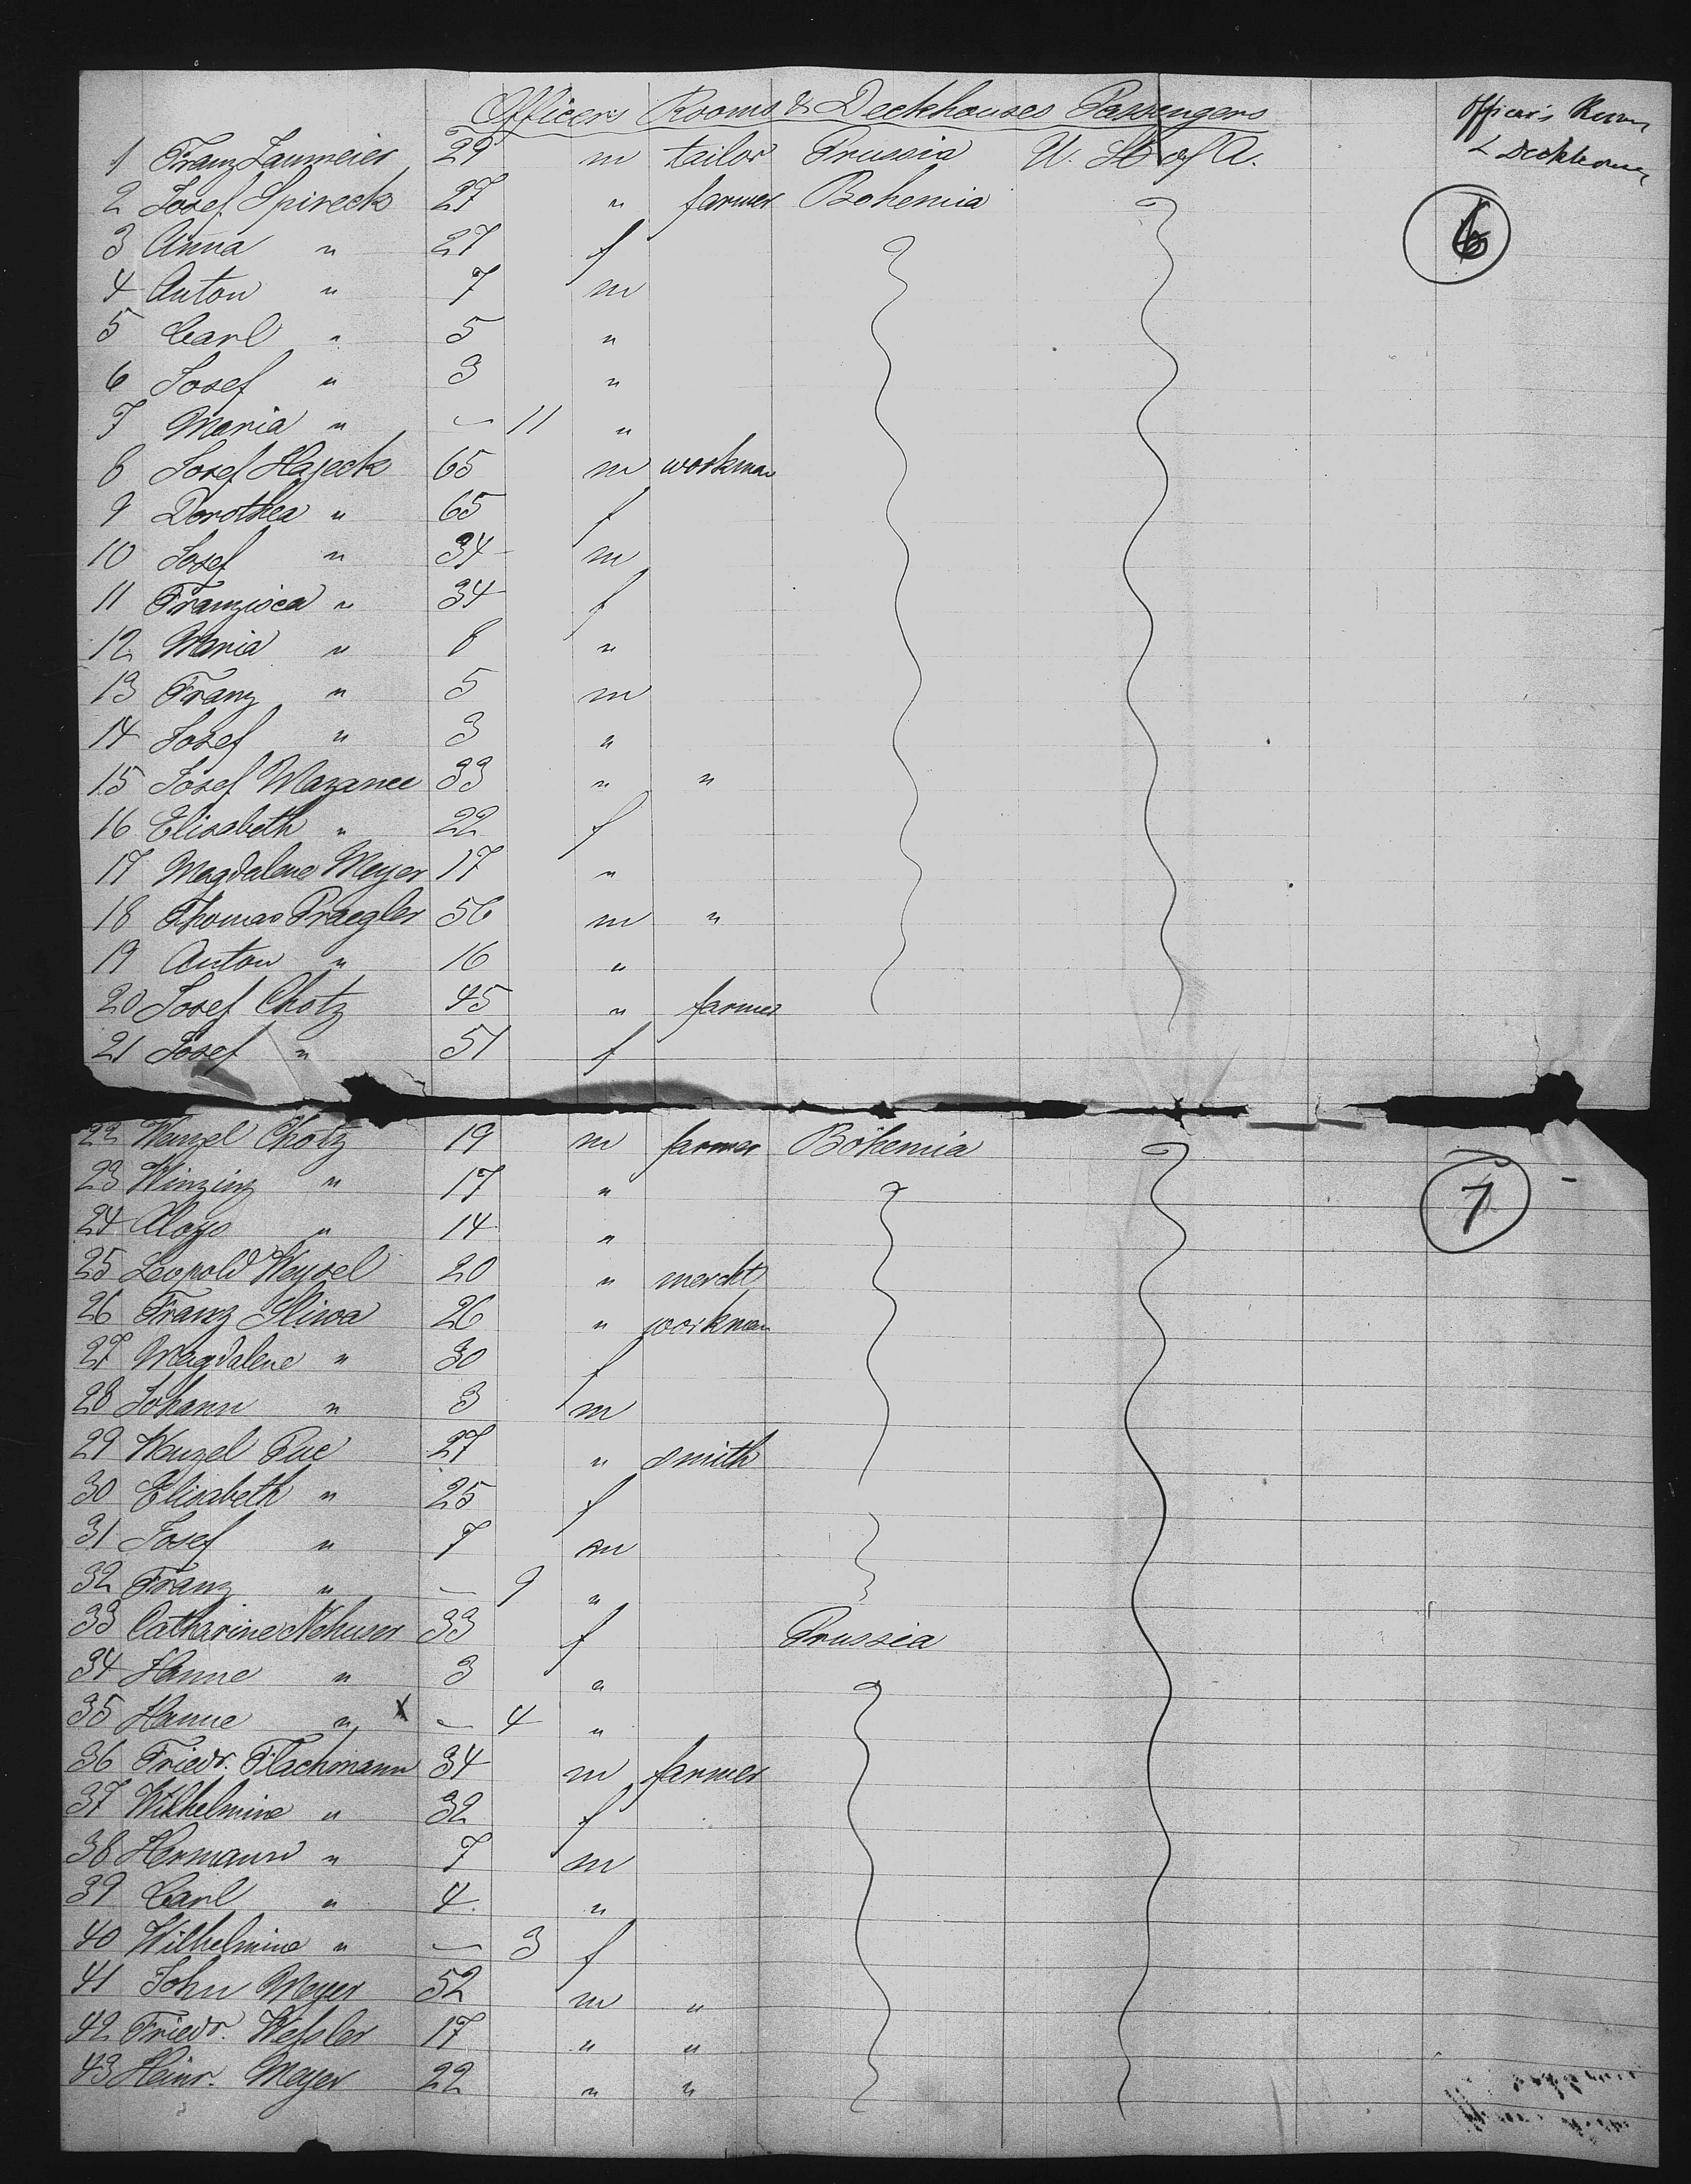 Officers Rooms & Deckhouses Passengers
Officer's Room
& Deckhouse
1 Franz Laumeier 29 m tailor Prussia U. St. of A.
2 Josef Spireck 27 " farmer Bohemia
6
3 Anna " 27 f
4 Anton " 7 m
5 Carl " 5 "
6 Josef " 3 "
7 Maria " — 11 "
8 Josef Hajeck 65 m workman
9 Dorothea " 65 f
10 Josef " 34 m
11 Franzisca " 34 f
12 Maria " 8 "
13 Franz " 5 m
14 Josef " 3 "
15 Josef Mazanec 33 " "
16 Elisabeth " 22 f
17 Magdalene Meyer 17 "
18 Thomas Praegler 56 m "
19 Anton " 16 "
20 Josef Chotz 45 " farmer
21 Josef " 51 f
22 Wenzel Chotz 19 m farmer Bohemia
23 Winzinz " 17 "
7
24 Aloys " 14 "
25 Leopold Weysel 20 " mercht
26 Franz Sliwa 26 " workman
27 Magdalene " 30 f
28 Johann " 3 m
29 Wenzel Puc 27 " smith
30 Elisabeth " 25 f
31 Josef " 7 m
32 Franz " — 9 "
33 Catharine 33 f Prussia
34 Hanne " 3 "
35 Hanne " X — 4 "
36 Friedr. Flachmann 34 m farmer
37 Wilhelmine " 32 f
38 Hermann " 7 m
39 Carl " 4 "
40 Wilhelmine " — 3 f
41 John Meyer 52 m "
42 Friedr. Weßler 17 " "
43 Heinr. Meyer 22 " "